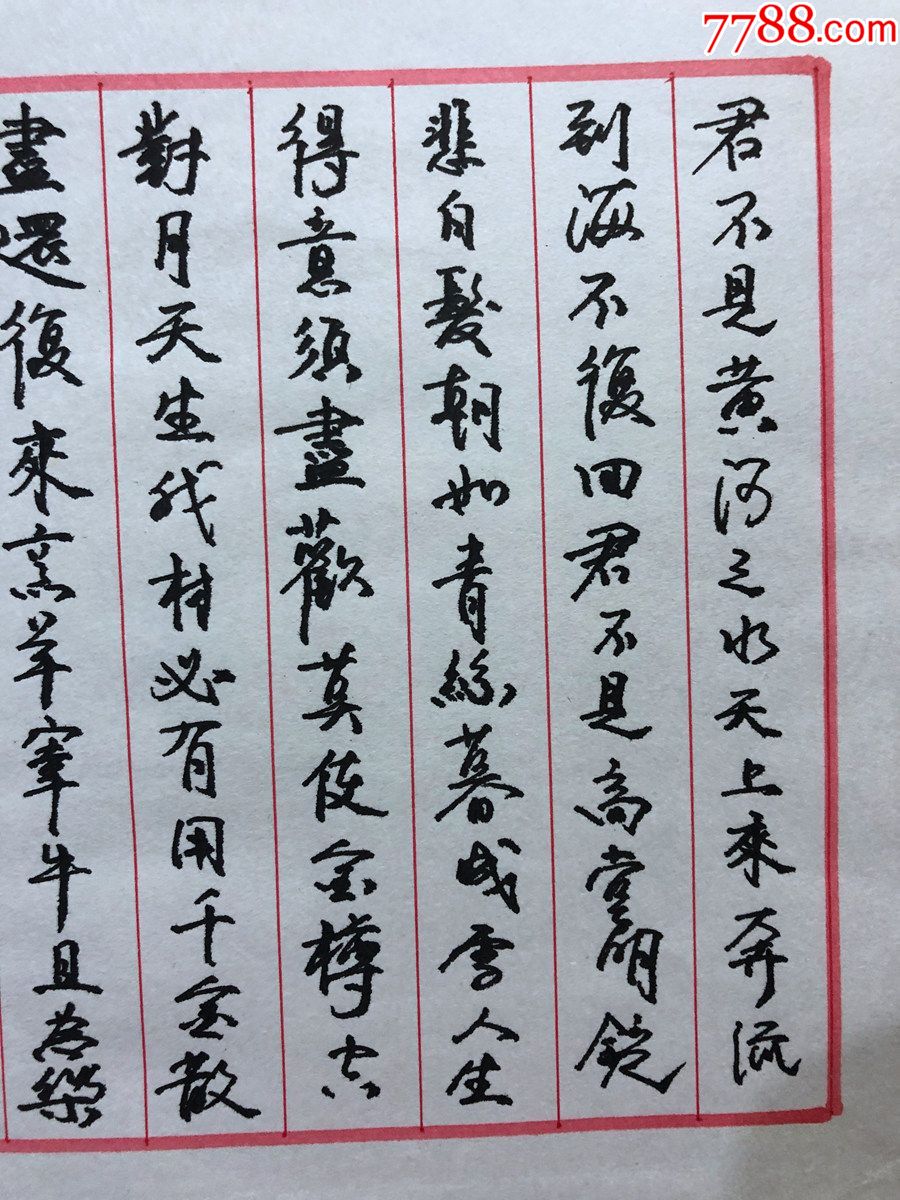 7788.com
君不見黃河之水天上來奔流
到海不復回君不見高堂明鏡
悲白髮朝如青絲暮成雪人生
得意須盡歡莫使金樽空
對月天生我材必有用千金散
盡還復來烹羊宰牛且為樂